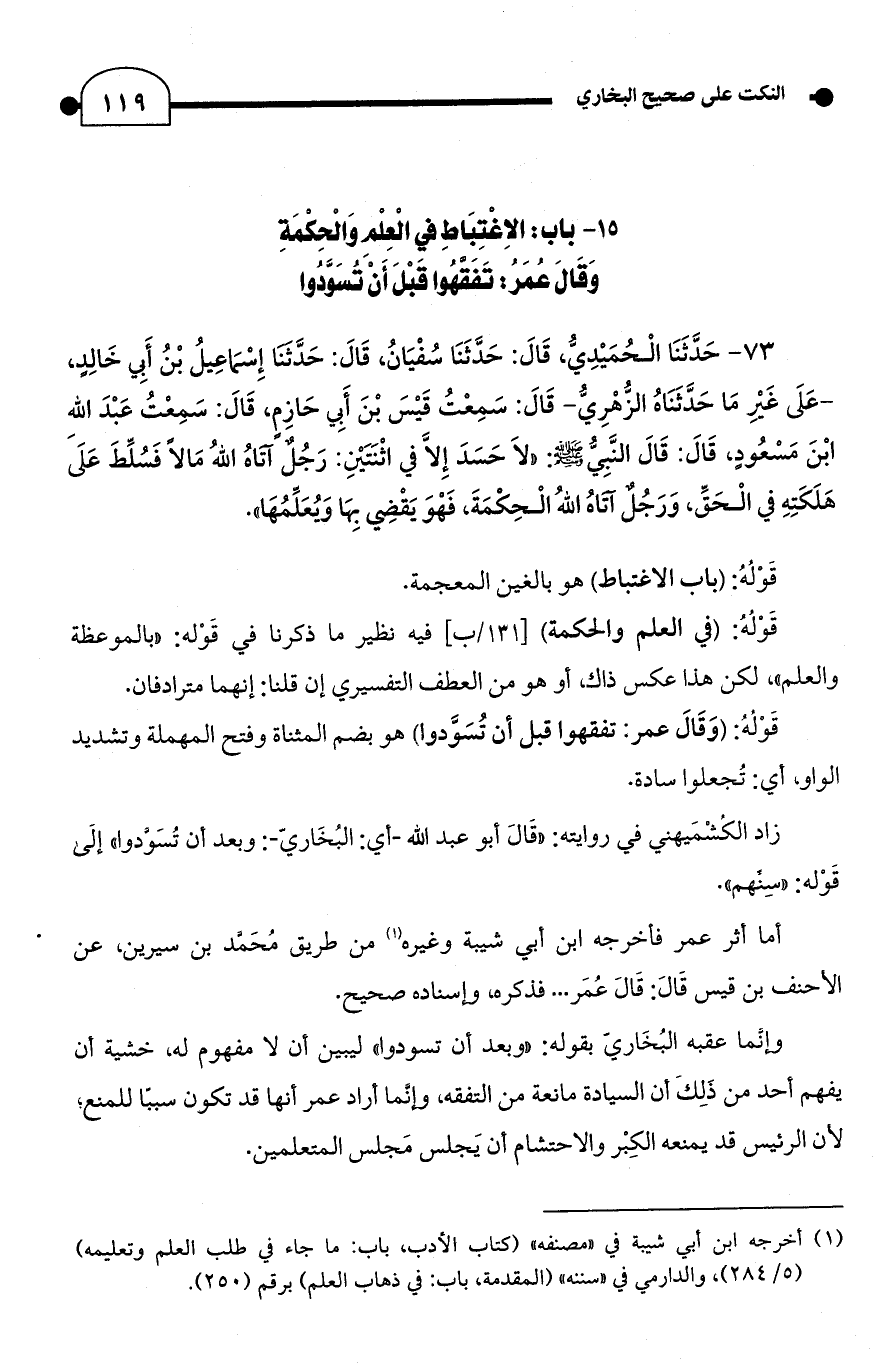 النكت على صحيح البخاري
١١٩
١٥- باب: الاِغْتِبَاطِ فِي الْعِلْمِ وَالْحِكْمَةِ
وَقَالَ عُمَرُ: تَفَقَّهُوا قَبْلَ أَنْ تُسَوَّدُوا
٧٣- حَدَّثَنَا الْحُمَيْدِيُّ، قَالَ: حَدَّثَنَا سُفْيَانُ، قَالَ: حَدَّثَنَا إِسْمَاعِيلُ بْنُ أَبِي خَالِدٍ،
-عَلَى غَيْرِ مَا حَدَّثَنَاهُ الزُّهْرِيُّ- قَالَ: سَمِعْتُ قَيْسَ بْنَ أَبِي حَازِمٍ، قَالَ: سَمِعْتُ عَبْدَ اللهِ
ابْنَ مَسْعُودٍ، قَالَ: قَالَ النَّبِيُّ ﷺ: «لاَ حَسَدَ إِلاَّ فِي اثْنَتَيْنِ: رَجُلٌ آتَاهُ اللهُ مَالاً فَسُلِّطَ عَلَى
هَلَكَتِهِ فِي الْحَقِّ، وَرَجُلٌ آتَاهُ اللهُ الْحِكْمَةَ، فَهْوَ يَقْضِي بِهَا وَيُعَلِّمُهَا».
قَوْلُهُ: (باب الاغتباط) هو بالغين المعجمة.
قَوْلُهُ: (في العلم والحكمة) [١٣١/ب] فيه نظير ما ذكرنا في قَوْله: «بالموعظة
والعلم»، لكن هذا عكس ذاك، أو هو من العطف التفسيري إن قلنا: إنهما مترادفان.
قَوْلُهُ: (وَقَالَ عمر: تفقهوا قبل أن تُسَوَّدوا) هو بضم المثناة وفتح المهملة وتشديد
الواو، أي: تُجعلوا سادة.
زاد الكُشْمَيهني في روايته: «قَالَ أبو عبد الله -أي: البُخَاريّ-: وبعد أن تُسَوَّدوا» إلَىٰ
قَوْله: «سِنِّهم».
أما أثر عمر فأخرجه ابن أبي شيبة وغيره(١) من طريق مُحَمَّد بن سيرين، عن
الأحنف بن قيس قَالَ: قَالَ عُمَر... فذكره، وإسناده صحيح.
وإنَّما عقبه البُخَاريّ بقوله: «وبعد أن تسودوا» ليبين أن لا مفهوم له، خشية أن
يفهم أحد من ذَلِكَ أن السيادة مانعة من التفقه، وإنَّما أراد عمر أنها قد تكون سببًا للمنع؛
لأن الرئيس قد يمنعه الكِبْر والاحتشام أن يَجلس مَجلس المتعلمين.
(١) أخرجه ابن أبي شيبة في «مصنفه» (كتاب الأدب، باب: ما جاء في طلب العلم وتعليمه)
(٥/ ٢٨٤)، والدارمي في «سننه» (المقدمة، باب: في ذهاب العلم) برقم (٢٥٠).